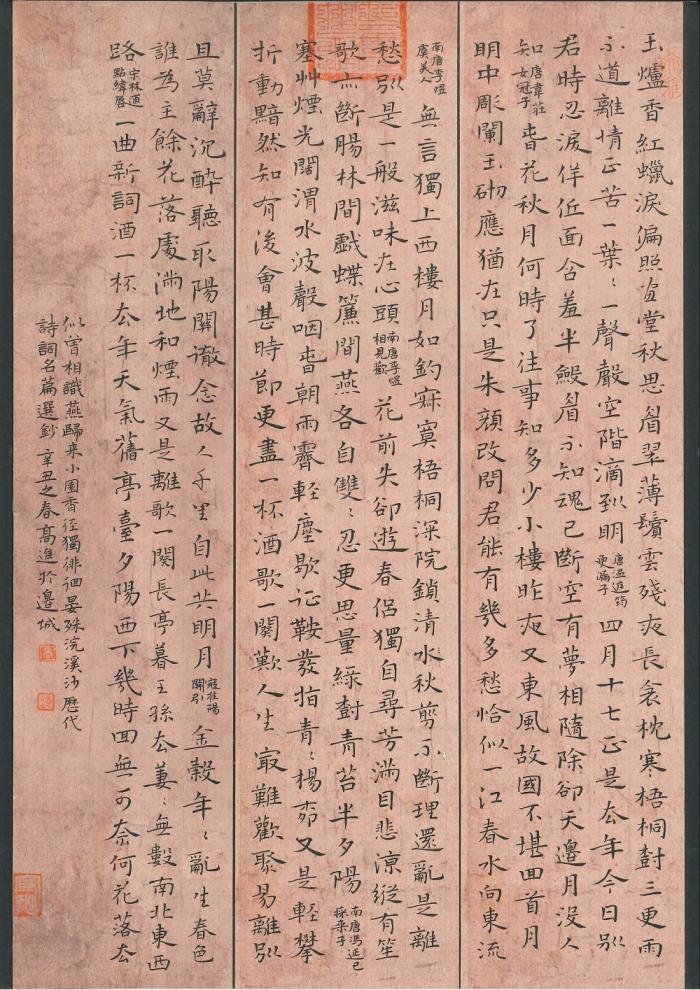 玉爐香紅蠟淚偏照畫堂秋思眉翠薄鬢雲殘夜長衾枕寒梧桐樹三更雨
不道離情正苦一葉〻一聲聲空階滴到明唐溫庭筠更漏子四月十七正是去年今日別
君時忍淚佯低面含羞半斂眉不知魂已斷空有夢相隨除卻天邊月沒人
知唐韋莊女冠子春花秋月何時了往事知多少小樓昨夜又東風故國不堪回首月
明中彫闌玉砌應猶在只是朱顏改問君能有幾多愁恰似一江春水向東流
南唐李煜虞美人無言獨上西樓月如鈎寂寞梧桐深院鎖清水秋剪不斷理還亂是離
愁別是一般滋味在心頭南唐李煜相見歡花前失卻遊春侶獨自尋芳滿目悲涼縱有笙
歌亦斷腸林間戲蝶簾間燕各自雙〻忍更思量綠樹青苔半夕陽南唐馮延巳採桑子
塞艸煙光闊渭水波聲咽春朝雨霽輕塵歇征鞍發指青〻楊柳又是輕攀
折動黯然知有後會甚時節更盡一杯酒歌一闋歎人生最難歡聚易離別
且莫辭沉醉聽取陽關徹念故人千里自此共明月寇準陽關引金穀年〻亂生春色
誰為主餘花落處滿地和煙雨又是離歌一闋長亭暮王孫去萋〻無數南北東西
路宋林逋點絳唇一曲新詞酒一杯去年天氣舊亭臺夕陽西下幾時回無可奈何花落去
似曾相識燕歸來小園香徑獨徘徊晏殊浣溪沙歷代
詩詞名篇選鈔辛丑之春高進於邊城